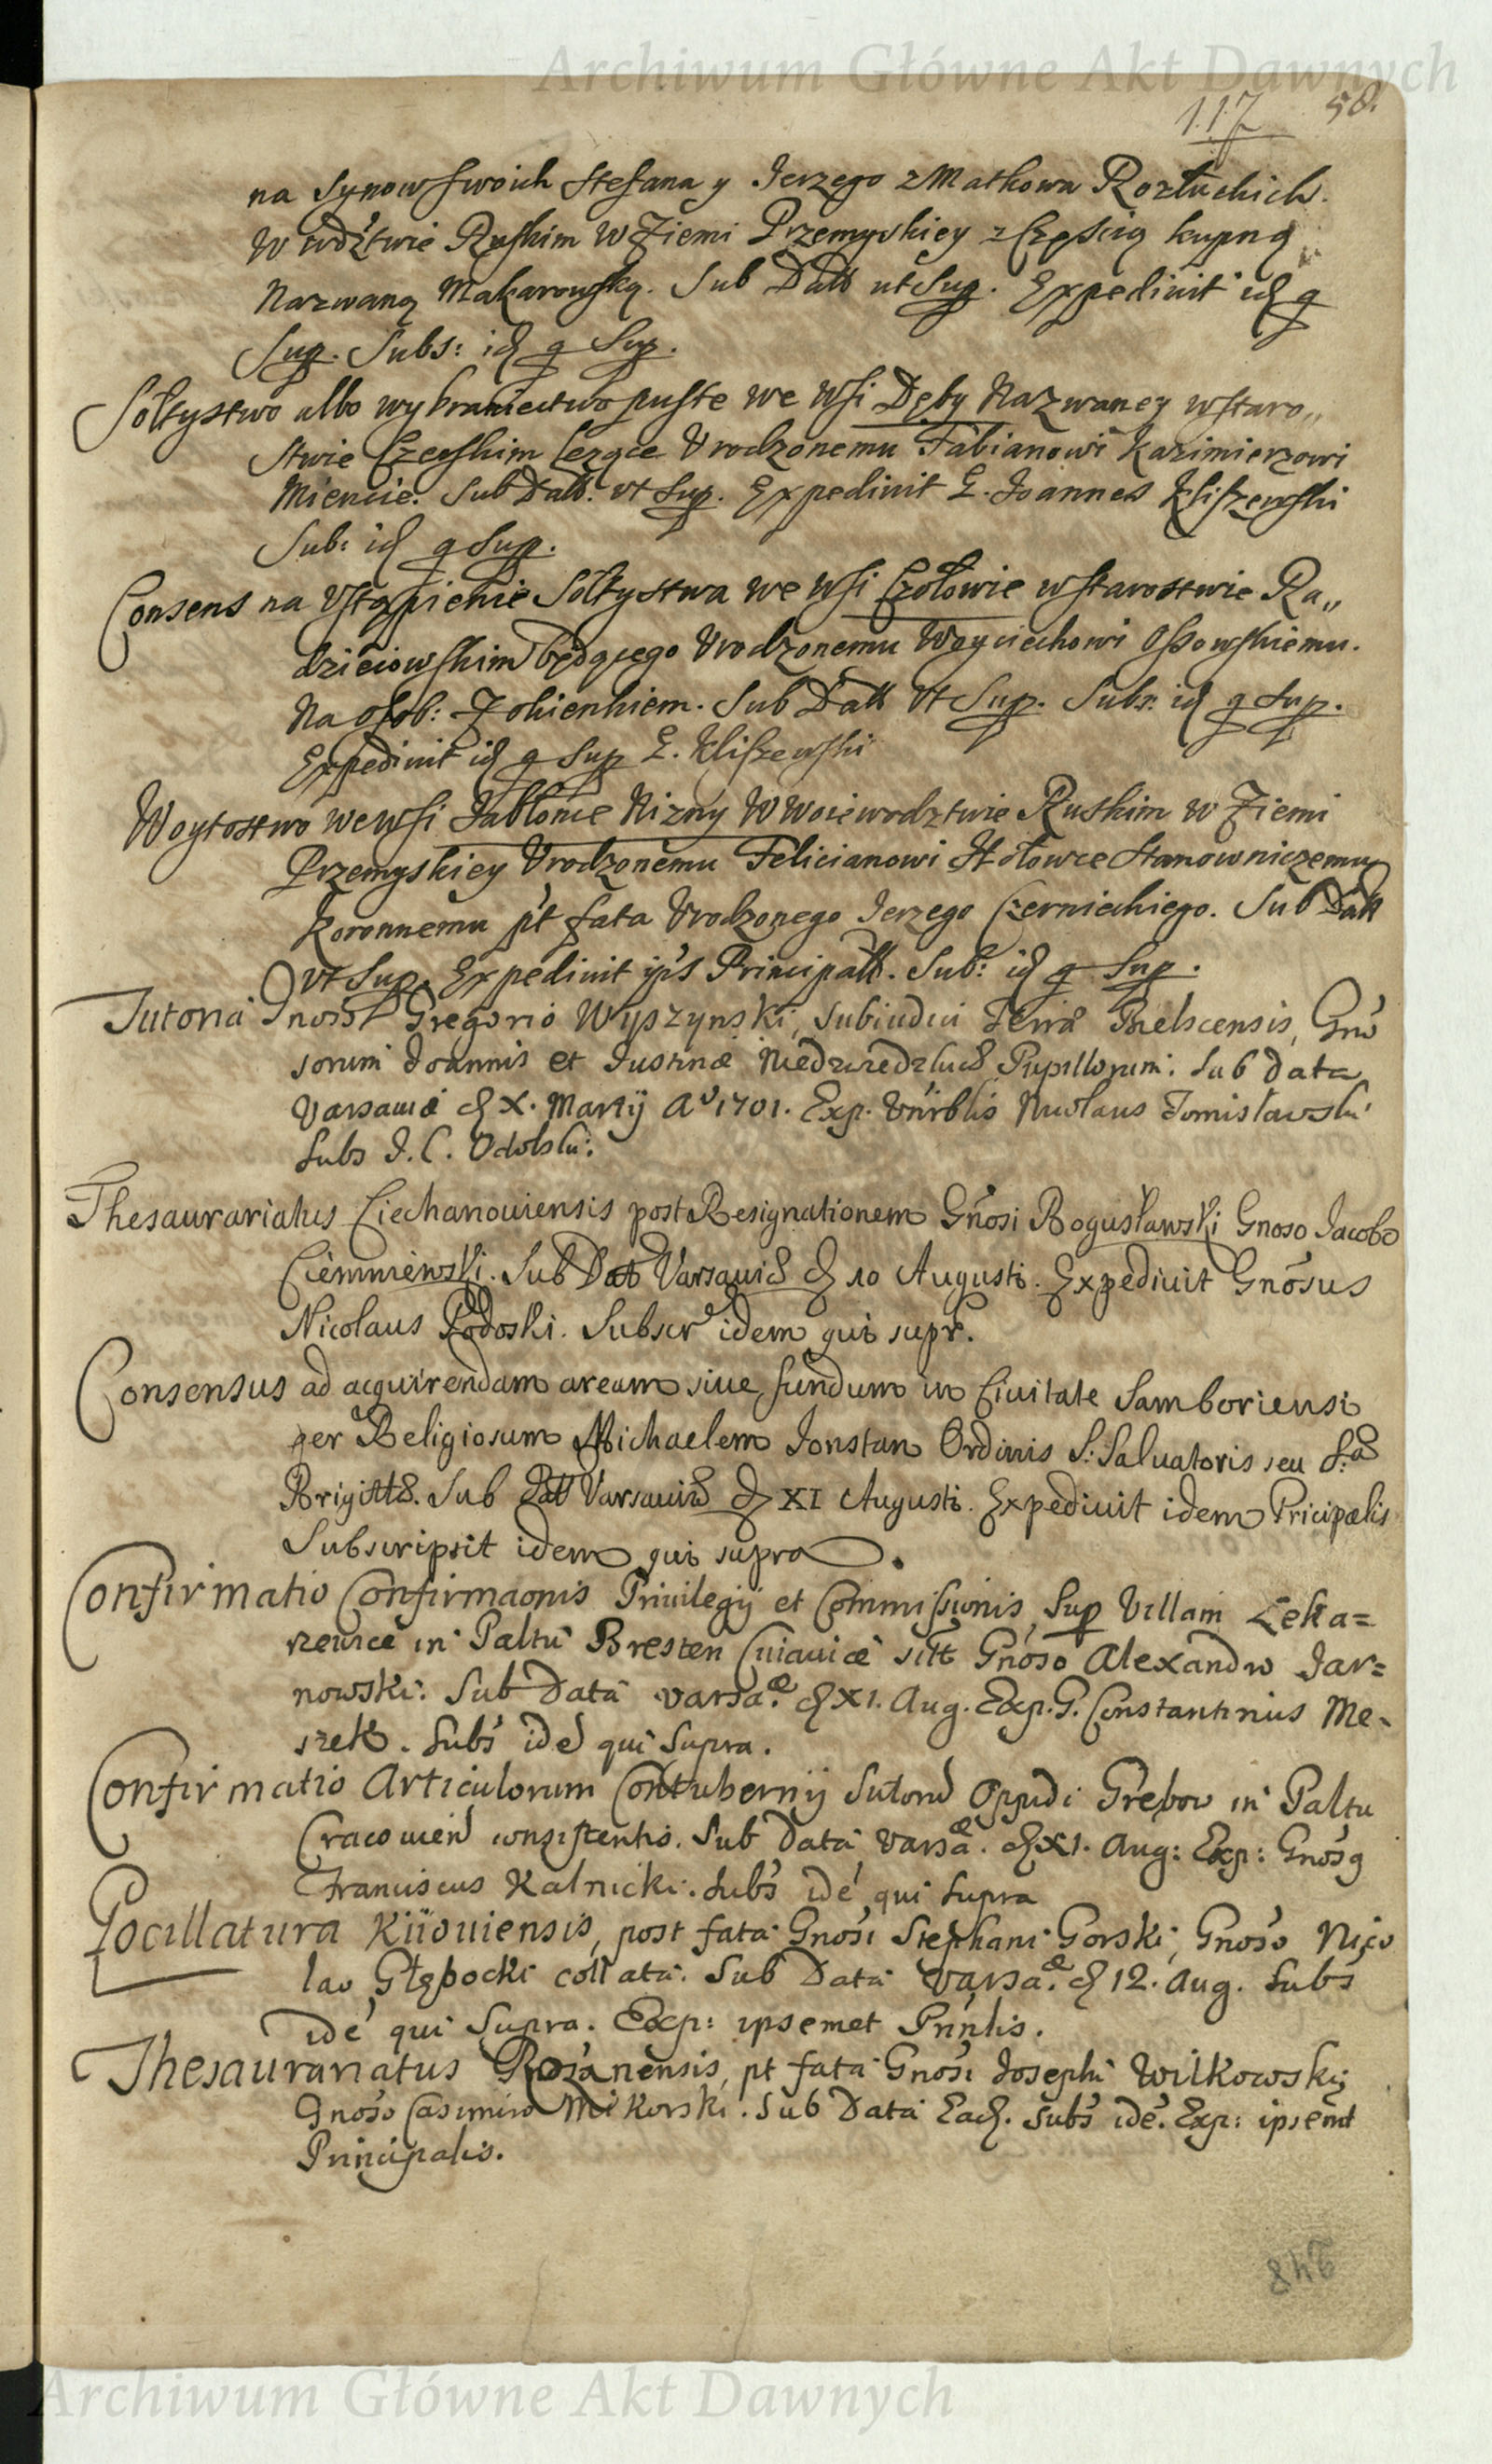 Archiwum Główne Akt Dawnych
117 58.
na Synow swoich Stefana y Jerzego z Matkowa Rozłuchich.
W wdztwie Ruskim W Ziemi Przemyskiey z Częścią kupną
Nazwaną Makarowską. Sub Datt ut Sup. Expedivit id q
Sup. Subs: id q Sup.
Sołtystwo albo wybraniectwo puste we Wsi Dęby Nazwaney w staro„
stwie Czerskim Lezące Urodzonemu Fabianowi Kazimierzowi
Miencie. Sub Datt. Vt Sup. Expedivit G. Joannes Kliszewski
Sub: id q Sup.
Consens na Vstąpienie Sołtystwa we Wsi Czołowie w starostwie Ra„
dzieiowskim będącego Urodzonemu Woyciechowi Ossowskiemu.
Na osob: Zohienhiem. Sub Datt Vt Sup. Subs: id q Sup.
Expedivit id q Sup G. Kliszewski
Woytostwo we Wsi Jabłonce Nizny W Woiewodztwie Ruskim w Ziemi
Przemyskiey Urodzonemu Felicianowi Hołowce Stanowniczemu
Koronnemu pt fata Urodzonego Jerzego Czernieckiego. Sub Datt
vt Sup. Expedivit ips Principalis. Sub: id q Sup.
Tutoria Gnoso Gregorio Wyszynski, Subiudici Terræ Bielscensis, Gno
sorum Joannis et Justinæ Niedzwiedzkich Pupillorum. Sub data
Varsaviæ d X. Martij Ao 1701. Exp. Vnrblis Nicolaus Tomisławski
Subs J. C. Odolski:
Thesaurariatus Ciechanoviensis post Resignationem Gnosi Bogusławski Gnoso Jacobo
Ciemniewski. Sub Dat Varsaviæ d 10 Augusti. Expedivit Gnosus
Nicolaus Podoski. Subscr idem qui supr.
Consensus ad acquirendam aream sive fundum in Civitate Samboriensi
per Religiosum Michaelem Jonstan Ordinis S: Salvatoris seu S.æ
Brigittæ. Sub Datt Varsaviæ d XI Augusti. Expedivit idem Pricipalis
Subscripsit idem qui supra.
Confirmatio Confirmaonis Privilegij et Commissionis Sup Villam Leka=
rzewice in Paltu Bresten Cuiaviæ sitt Gnoso Alexandro Jar=
nowski. Sub Data varsa.æ d XI. Aug. Exp. G. Constantinus Me-
szek. Subs idé qui Supra.
Confirmatio Articulorum Contubernij Sutorū Oppidi Grebow in Paltu
Cracovien consistentis. Sub data varsæ. d XI. Aug: Exp: Gnosq
Franciscus Kalnicki. Subs idé qui Supra
Pocillatura Kiioviensis, post fata Gnosi Stephani Gorski, Gnoso Nico
lao Głębocki collata. Sub Data varsa.æ d 12. Aug. Subs
idé qui Supra. Exp: ipsemet Prinlis.
Thesaurariatus Rożanensis, pt fata Gnosi Josephi Wilkowski,
Gnoso Casimiro Mikorski. Sub Data Ead. Subs idé. Exp: ipsemt
Principalis.
248
Archiwum Główne Akt Dawnych